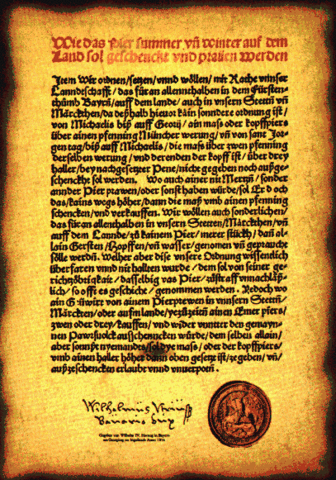 Wie das Pier summer vñ winter auf dem
Land sol geschenckt vnd prauen werden
Item Wir ordnen/setzen/vnnd wöllen/mit Rathe vnnser
Lanndschafft/das für an allennthalben in dem Fürsten-
thůmb Bayrñ/auff dem lande/auch in vnsern Stettñ vñ
Märckthen/da deßhalb hieuor kain sonndere ordnung ist/
von Michaelis biß auff Georij/ain mass oder kopffpiers
über ainen pfenning Müncher werung/vñ von sant Jor-
gen tag/biß auff Michaelis/die mass über zwen pfenning
derselben werung/vnd derenden der kopff ist/über drey
haller/bey nachgesetzter Pene/nicht gegeben noch außge-
schenckht sol werden. Wo auch ainer nit Mertzñ/sonder
annder Pier prawen/oder sonst haben würde/sol Er doch
das/kains wegs höher/dann die maß vmb ainen pfenning
schencken/vnd verkauffen. Wir wöllen auch sonderlichen/
das für an allenthalben in vnsern Stetten/Märckthen/vñ
auff dem Lannde/zů kainem Pier/merer stückh/dañ al-
lain Gersten/Hopffen/vñ wasser/genomen vñ gepraucht
sölle werdñ. Welher aber dise vnsere Ordnung wissendlich
überfaren vnnd nit hallten wurde/dem sol von seiner ge-
richtzöbrigkait/dasselbig vas Pier/zůstraff vnnachläß-
lich/so offt es geschicht/genommen werden. Jedoch wo
ain Gäuwirt von ainem Pierprewen in vnnsern Stettñ/
Märckten/oder aufm lande/yezůzeitñ ainen Emer piers/
zwen oder drey/kauffen/vnd wider vnntter den gemaynn-
en Pawrsuolck außschencken würde/dem selben allain/
aber sonnst nyemandes/sol dye mass/oder der kopffpiers/
vmb ainen haller höher dann oben gesetzt ist/zegeben/vñ/
außzeschencken erlaubt vnnd vnuerpotñ.
Gegeben von Wilhelm IV. Herzog in Bayern
am Georgitag zu Ingolstadt Anno 1516